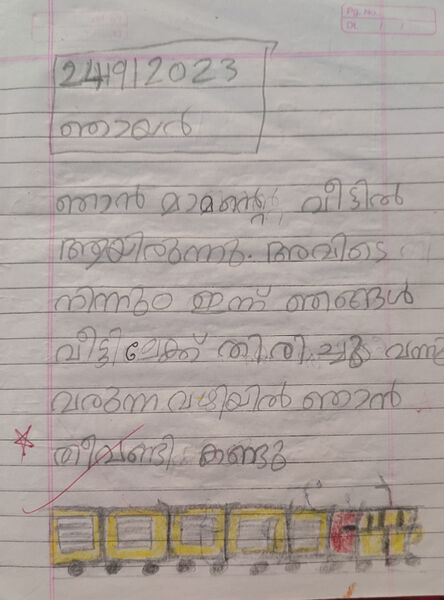 Pg. No.
Dt. / /
24/9/2023
ഞായർ
ഞാൻ മാമന്റെ വീട്ടിൽ
ആയിരുന്നു. അവിടെ
നിന്നും ഇന്ന് ഞങ്ങൾ
വീട്ടിലേക്ക് തിരിച്ചു വന്നു
വരുന്ന വഴിയിൽ ഞാൻ
തീവണ്ടി കണ്ടു